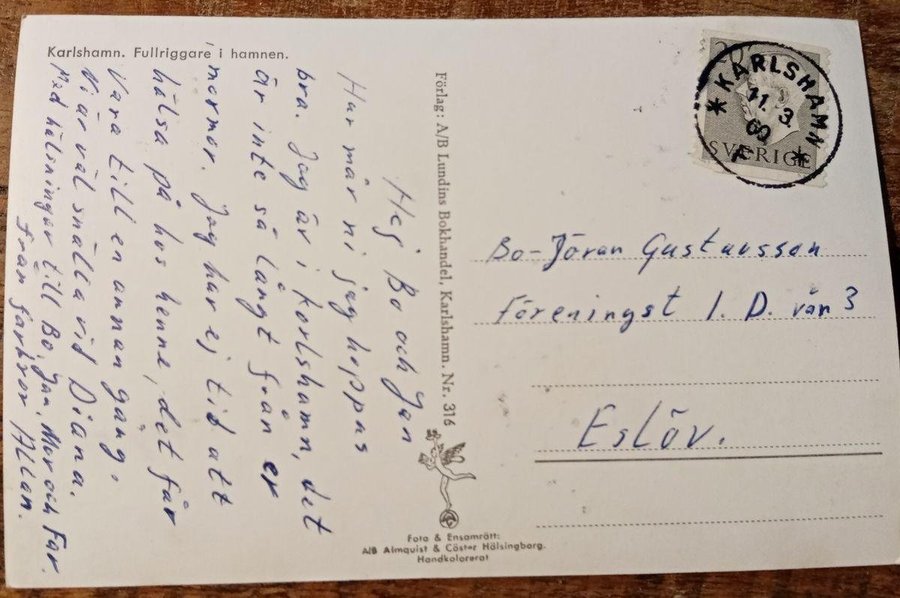 Karlshamn. Fullriggare i hamnen.
Hej Bo och Jan
Hur mår ni jag hoppas
bra. Jag är i Karlshamn, det
är inte så långt från er
mormor. Jag har ej tid att
hälsa på hos henne, det får
vara till en annan gång.
Ni är väl snälla vid Diana.
Med hälsningar till Bo, Jan, Mor och Far.
från farbror Allan.
Förlag: A/B Lundins Bokhandel, Karlshamn. Nr. 316
Foto & Ensamrätt:
A/B Almquist & Cöster Hälsingborg.
Handkolorerat
KARLSHAMN
11. 3
60
SVERIGE
Bo-Jöran Gustavsson
Föreningst 1. D. vån 3
Eslöv.